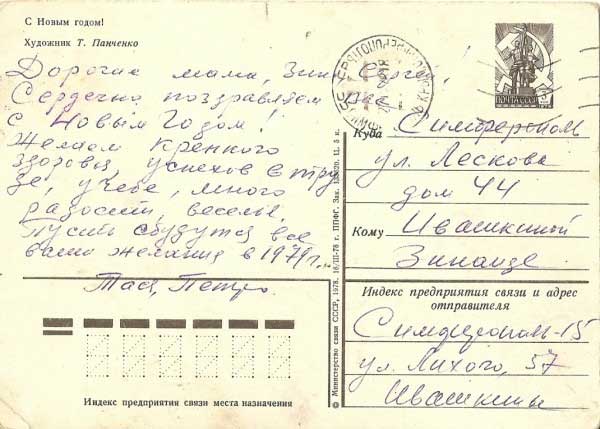 С Новым годом!
Художник Т. Панченко
Дорогие мама, Зина, Сергей!
Сердечно поздравляем Вас
с Новым Годом!
Желаем крепкого
здоровья, успехов в тру
де, учебе, много
радости, веселья.
Пусть сбудутся все
ваши желания в 1979 г.
Петро
ПОЧТА СССР
Куда Симферополь
ул. Лескова
дом 44
Кому Ивашкиной
Зинаиде
Индекс предприятия связи и адрес
отправителя
Симферополь-15
ул. Лихого, 57
Ивашкины
Индекс предприятия связи места назначения
© Министерство связи СССР, 1978. 16/III-78 г. ППФГ. Зак. Ц. 5 к.